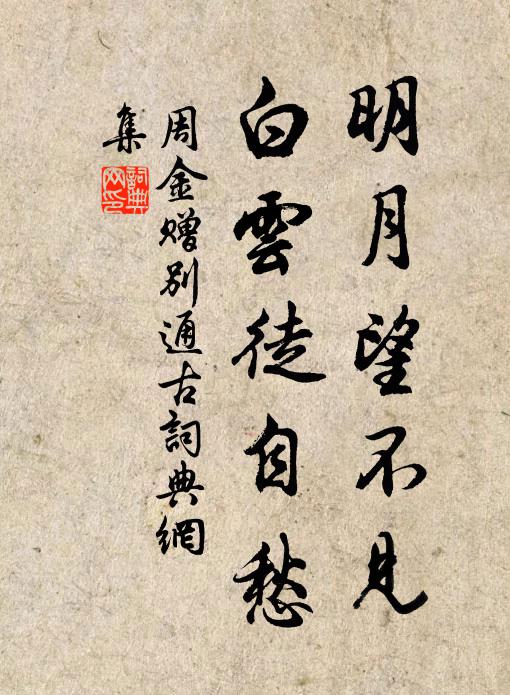 明月望不見
白雲徒自愁
周金赠別通古詞典網
集
詞典
网印